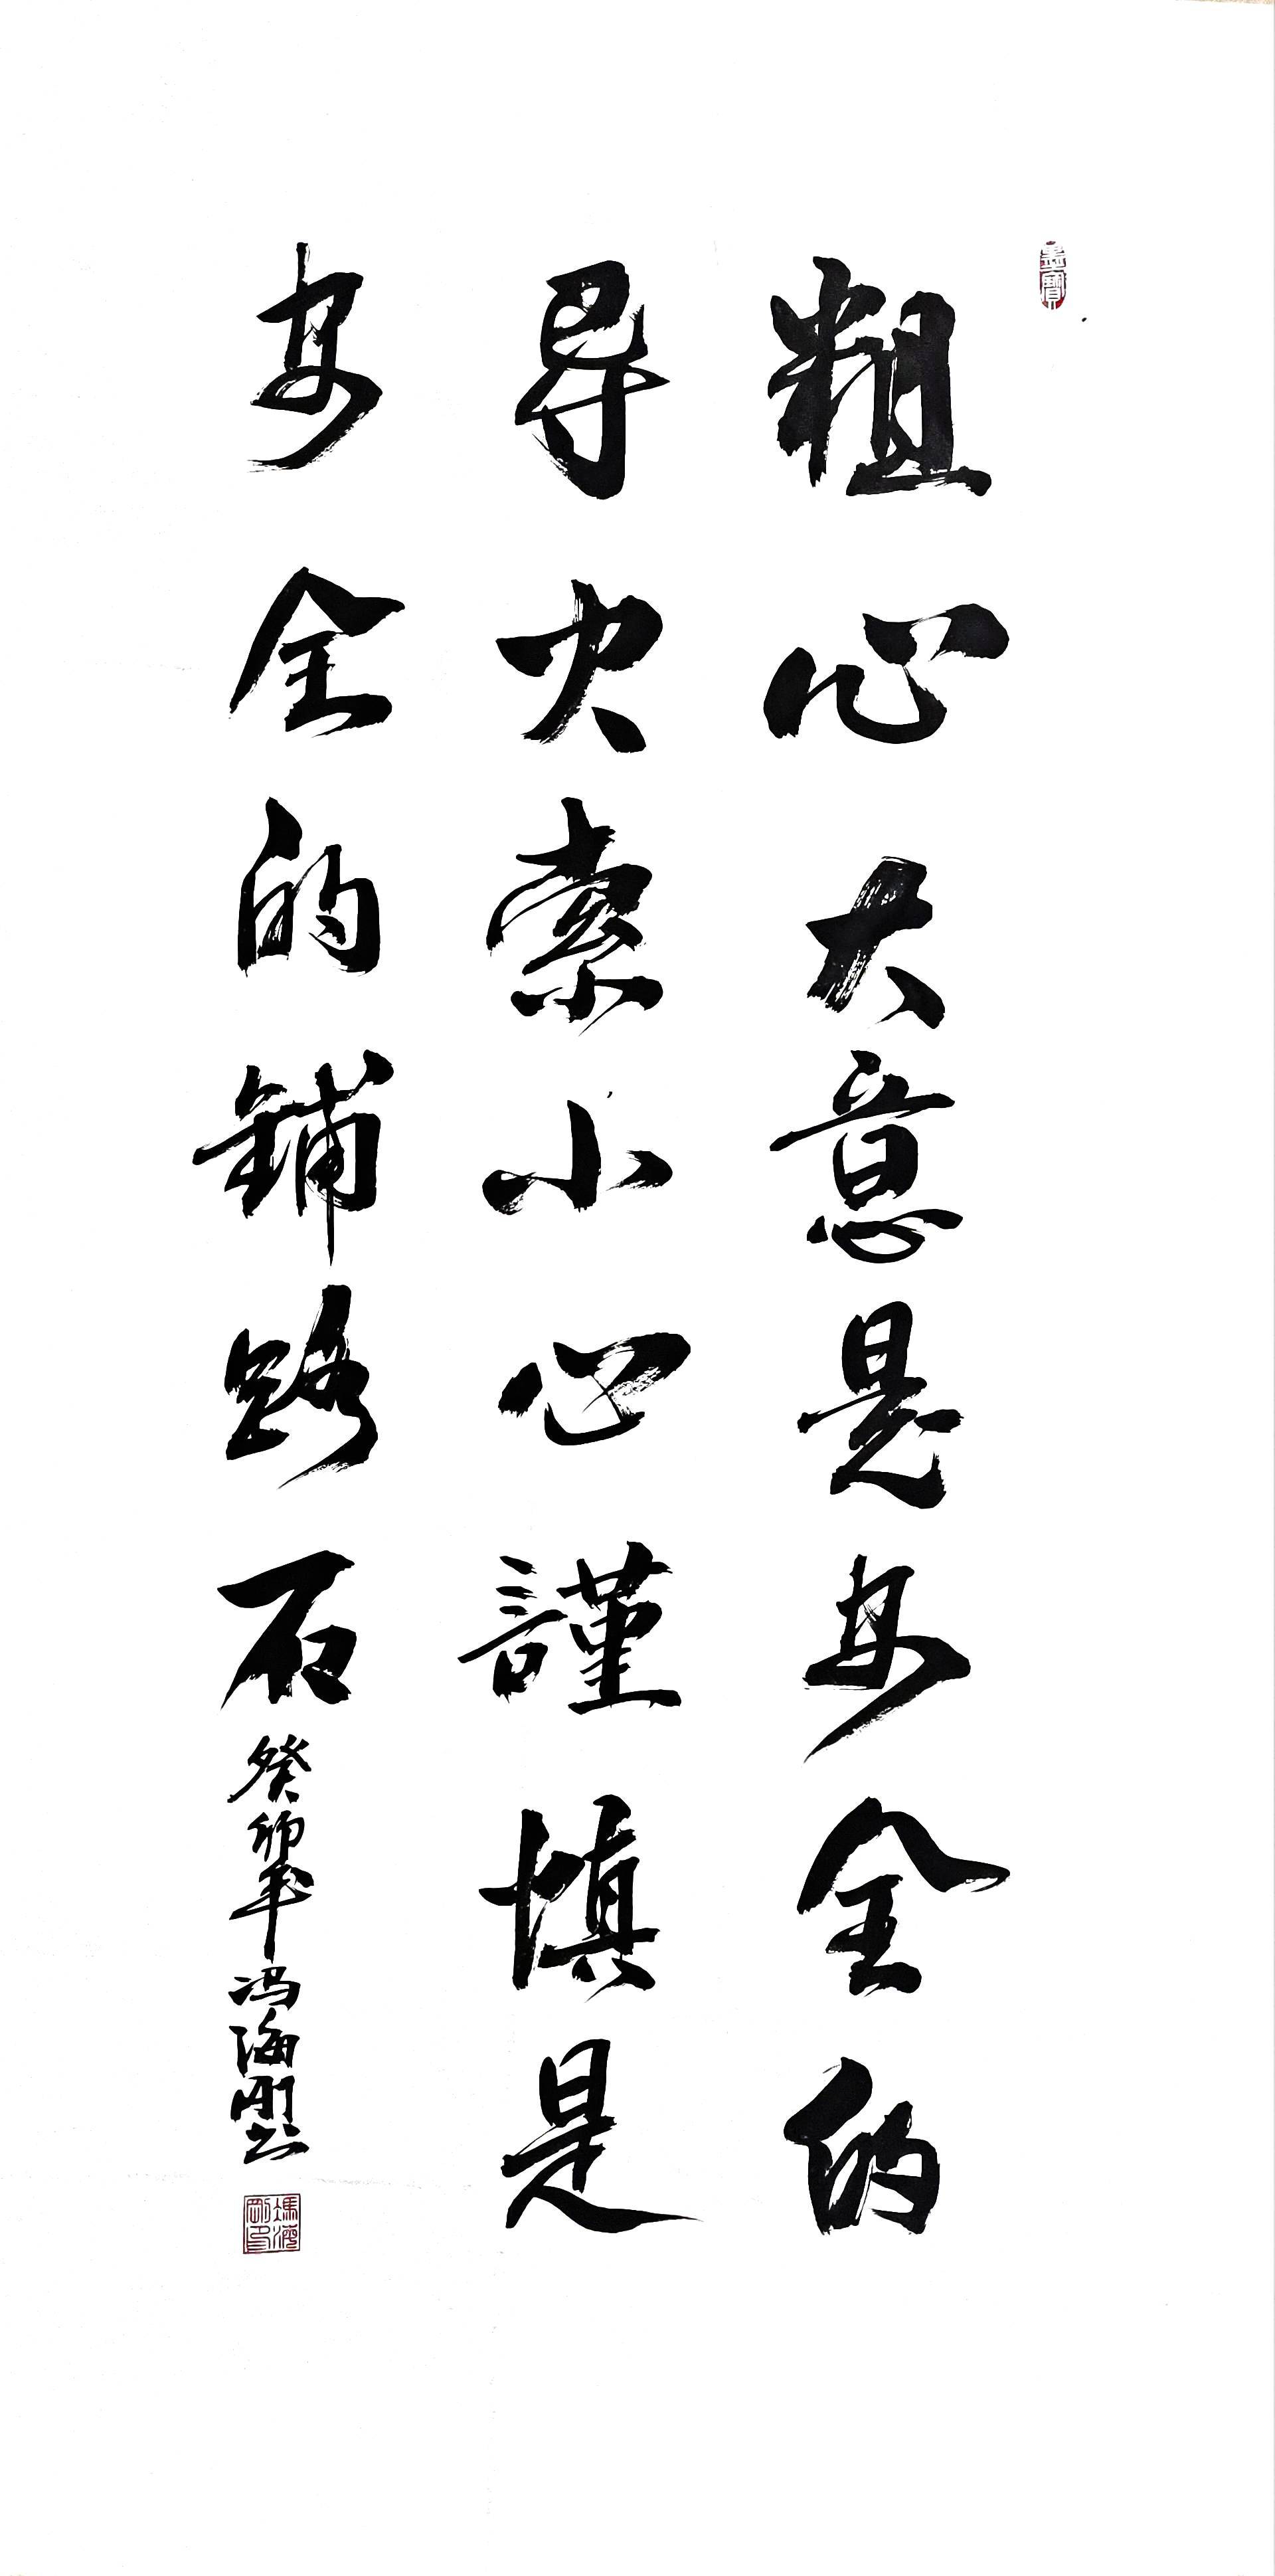 墨寶
粗心大意是安全的
导火索小心謹慎是
安全的鋪路石
癸卯年冯海刚书
馮海剛印